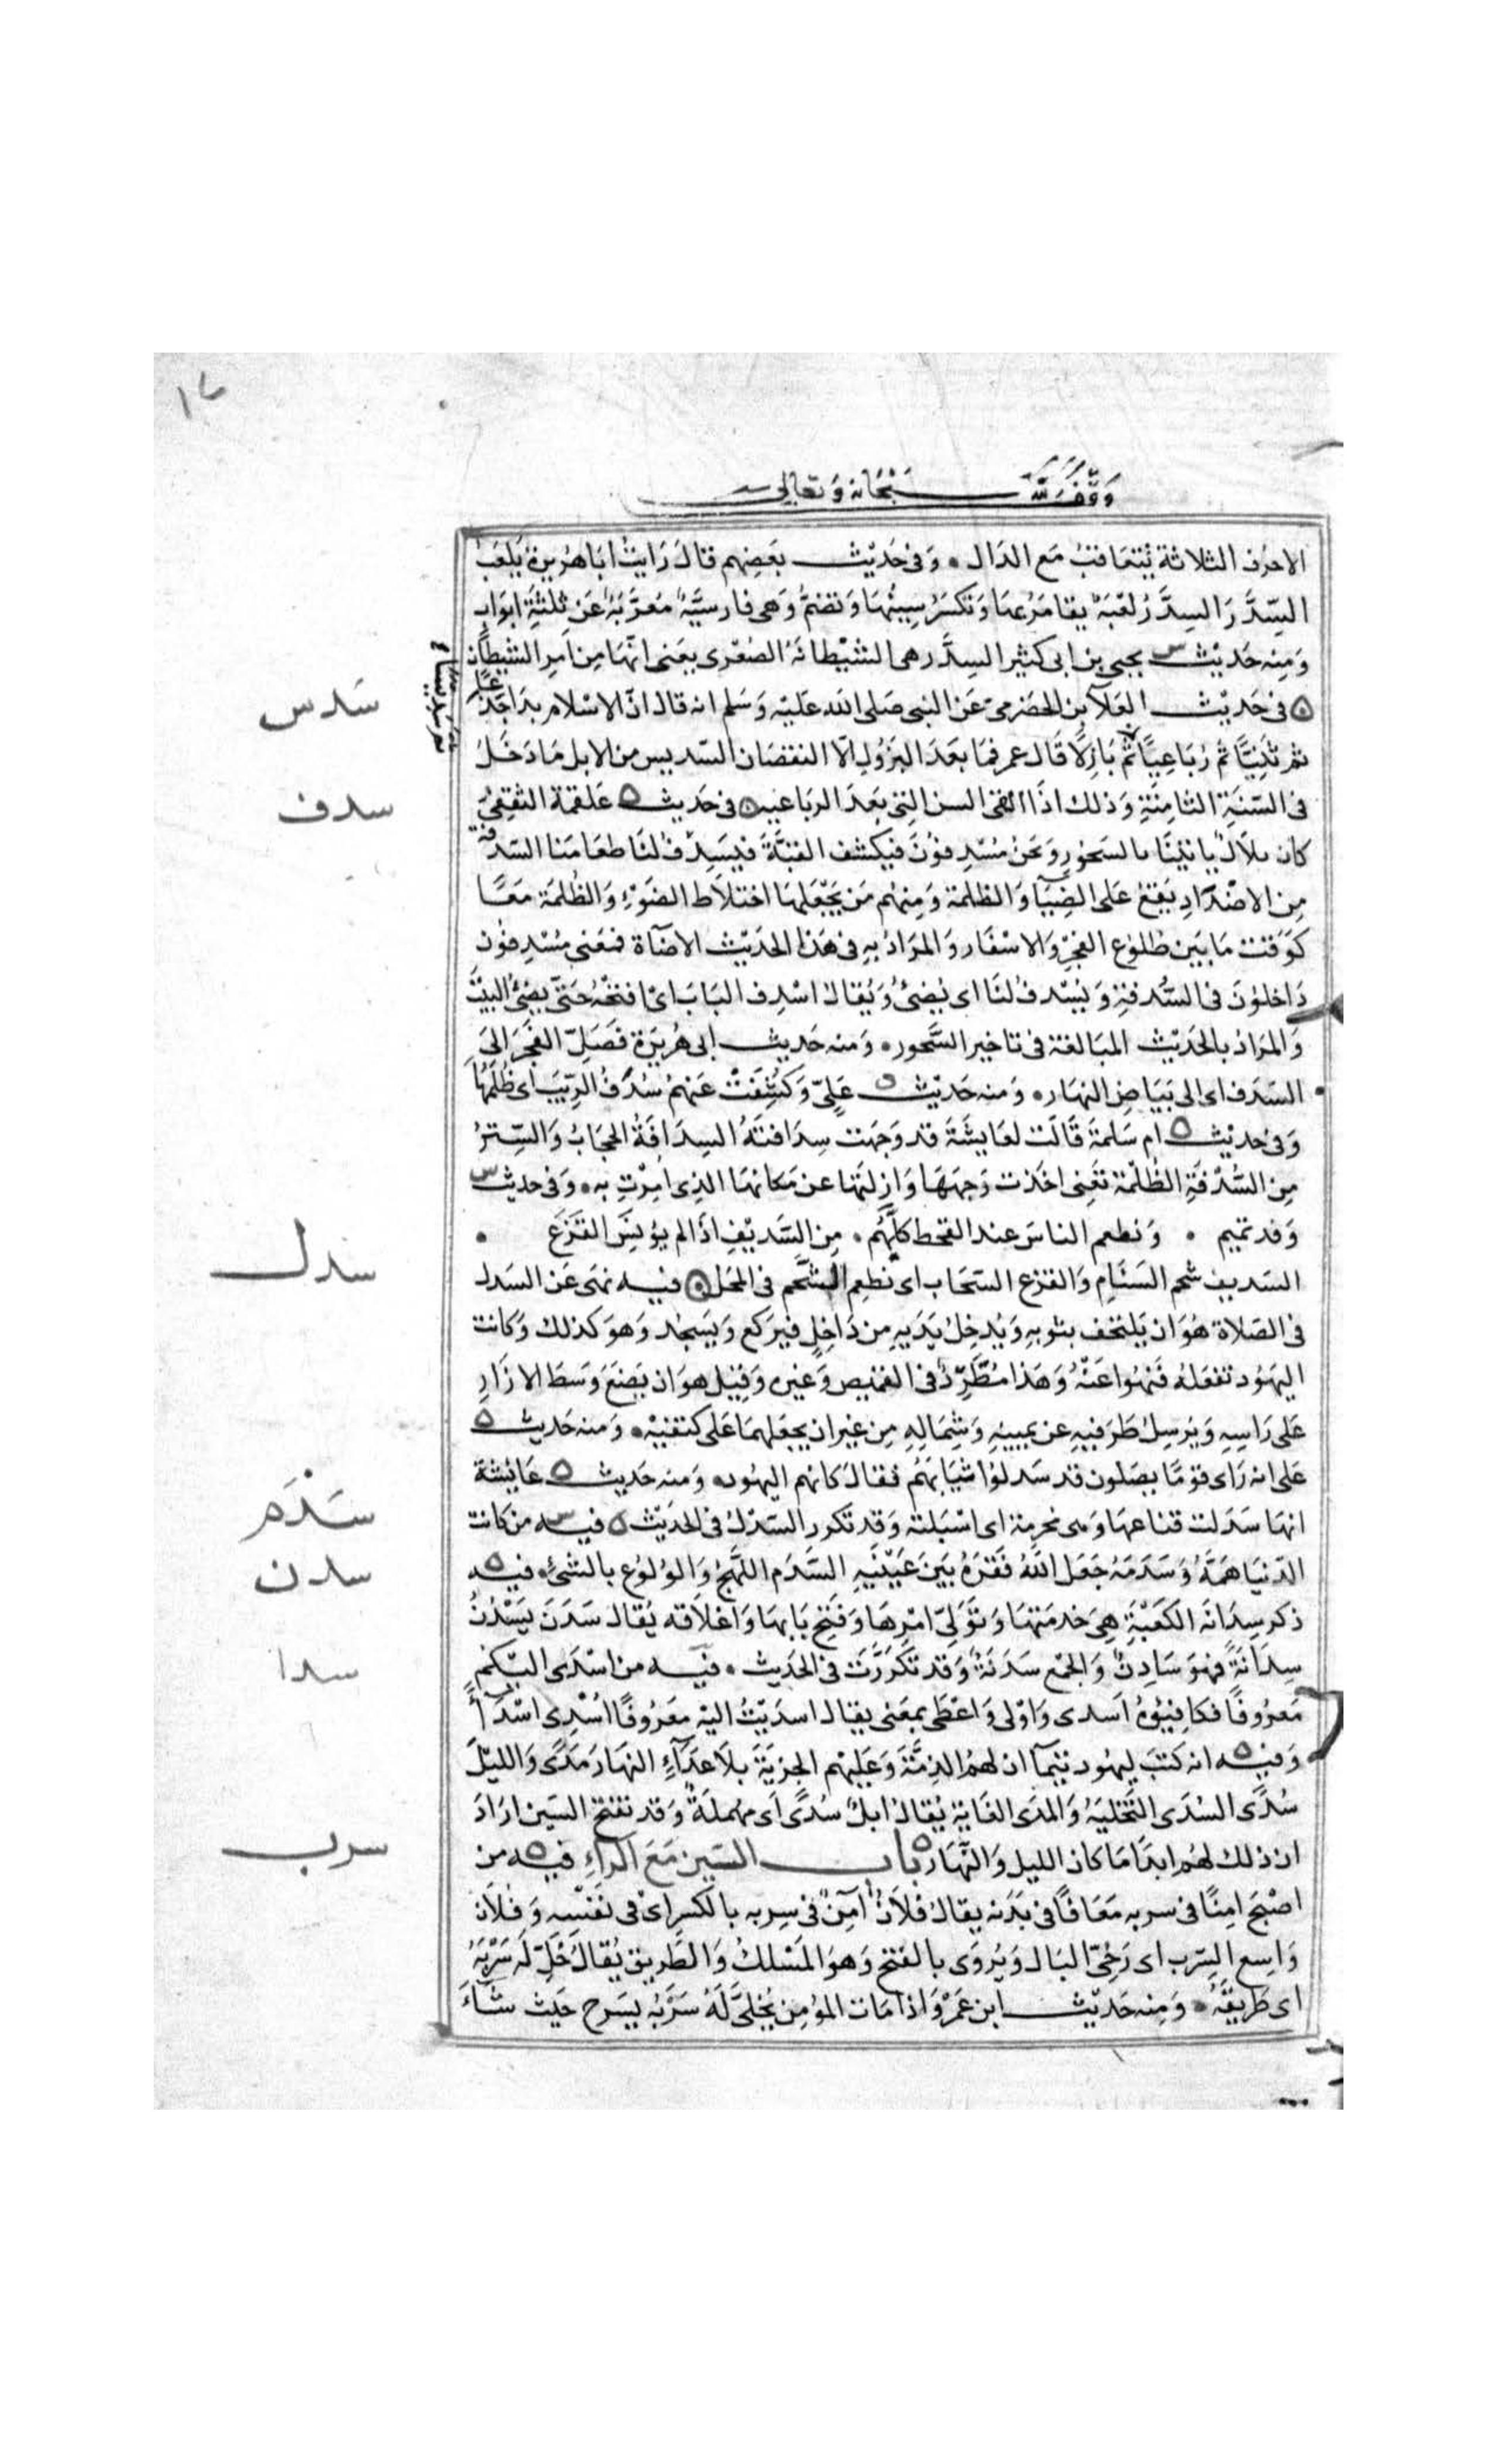 ١٦
وقف لله سبحانه وتعالى
الاحرف الثلاثة تتعاقب مع الدال ٠ وَفى حَديث بعضهم قال رَايتُ ابَا هُريرةَ يَلعَبُ
السِّدَّرَ السِدَّرُ لعْبَة يقامَرُ بهَا وَتكسَرُ سِينُهَا وَتضمُّ وَهى فارسيَّة مُعَرَّبَة عَن ثلثَةِ ابوَابٍ
وَمنه حَديث س يحيى بن ابى كثير السِدَّر هى الشيْطانَةُ الصُغرى يعَنى انهَا مِن امر الشيطان
فى حَديث العَلآ بن الحَضرَمىّ عَن النبى صَلى الله عَليْه وَسَلم انه قال انّ الاسْلام بدَا جَذَعًا
ثم ثَنِيًّا ثم رُبَاعِيًّا ثم بَازِلًا قَال عمر فمَا بعَدَ البزُولِ الّا النقصَان السّديس من الابل مَا دَخَلَ
فى السّنَةِ الثامِنَةِ وَذلك اذَا القى السن التى بَعدَ الرباعيه ٥ فى حَديث ٥ عَلقمَة الثقفِىّ
كان بلاَلٌ يَاتينَا بالسَحُورِ وَنحنُ مُسْدِفوُنَ فيكشف القبَّةَ فيَسِدفُ لنَا طعَامَنا السّدفة
مِن الاضْدَادِ يَقعُ عَلى الضِيَا وَالظلمة وَمنهُم مَن يَجْعَلهَا اختلاَط الضَوْءِ وَالظُلمَة مَعًا
كوَقت مَا بَين طلوُع الفجْرِ وَالاسْفَار وَالمرَادُ بهِ فى هَذا الحَديْث الاضآة فمَعنى مُسْدِفوُن
دَاخلوُنَ فى السُّدفةِ وَيُسْدفُ لنَا اى يُضئُ وَيُقالُ اسْدِف البَابَ اىْ افتحْهُ حَتىّ يضئَ البيتَ
وَالمرَادُ بالحَديْث المبَالغة فى تاخير السَّحور ٠ وَمنه حَديث ابى هُريَرَة فَصَلِّ الفَجَرَ الىَ
السَدَف اى الى بَيَاض النهَار ٠ وَمنه حَديْث ٥ عَلِىّ وَكُشِفَتْ عَنهُمْ سُدَفُ الرِّيَبِ اى ظُلَمُهَا
وَفى حَديث ٥ ام سَلمةَ قَالَت لعَايشَةَ قد وَجَهَت سِدَافتَهُ السِدَافَةُ الحجَابُ وَالسِّترُ
مِن السُّدْفَةِ الظُلمَة تعَنِى اخَذت وَجهَهَا وَازلتَها عن مَكانهَا الذِى امِرْتِ به ٠ وَفى حديث س
وَفد تميم ٠ وَنطعم الناسَ عند القحط كلَّهُم ٠ مِن السَّديْفِ اذَا لم يؤنسَ القَزَع ٠
السَديف شحم السَنَام وَالقزع السَحَاب اى نطعِم الشَّحم فى المحَل ٥ فيه نهَى عَن السَدل
فى الصَلاة هُوَ ان يَلتحف بثوبهِ وَيُدخِلَ يَدَيهِ مِن دَاخِلٍ فيَركع وَيَسجُد وَهوَ كذلك وَكانت
اليَهُود تفعَلهُ فَنُهُوا عَنْهُ وَهَذا مُطَّرِدٌ فى القميص وَغيره وَقيل هوَ ان يَضَعَ وَسَطَ الازَارِ
عَلى رَاسِهِ وَيُرسِلَ طَرَفيهِ عن يمينِهِ وَشِمَالِهِ مِن غيْر ان يجعَلهمَا عَلى كتفيْهِ ٠ وَمنه حَديث ٥
على انه رَاى قوْمًا يصَلون قد سَدلوُا ثيابَهُم فقالَ كانهم اليهُود ٠ وَمنه حَديث ٥ عَائشة
انهَا سَدَلت قناعهَا وَهى محْرمة اى اسْبَلته وَقد تكرر السَدْلُ فى الحَديْث ٥ فيه س من كانت
الدّنيَا هَمَّهُ وَسَدَمَهُ جَعَل اللهُ فَقرَهُ بَينَ عَيْنَيهِ السَّدَم اللَّهَجُ وَالوُلوُع بالشئ ٠ فيه ٥
ذكر سِدَانَة الكَعْبَةِ هِىَ خدمَتهَا وَتوَلىّ امْرِهَا وَفَتح بَابهَا وَاغلاَقه يُقال سَدَنَ يَسْدُنُ
سِدَانَةً فهوَ سَادِنٌ وَالجمْع سَدَنَةٌ وَقد تكَرَّرَت فى الحَديث ٠ فيه من اسْدَى اليكم
مَعرُوفًا فكافِئوُهُ اَسدى وَاوْلى وَاعْطَى بمعَنى يقال اسدَيْتُ اليْه معَرُوفًا اُسْدِى اسْدَآءً
وَفيه ٥ انه كتبَ ليهُود تيمآ ان لهُم الذِمَّةَ وَعَليْهم الجزيَةَ بلاَ عدَآءٍ النهَارَ مَدًى وَالليْلَ
سُدًى السُدَى التَخليَةُ وَالمدَى الغَاية يُقالُ ابلٌ سُدًى اى مُهمَلَةٌ وَقد تفتح السّين ارَادَ
ان ذلك لهُم ابدًا مَا كان الليل وَالنّهَار ٥ باب السّين مَعَ الرآءِ فيه ٥ من
اصْبَحَ امِنًا فى سربه مَعَافًا فى بَدَنه يقالُ فلاَنٌ آمِنٌ فى سِربه بالكسر اىْ فى نَفْسِه وَفلاَن
وَاسِع السِّرب اى رَخِىّ البَال وَيُروَى بالفتح وَهوَ المَسْلكُ وَالطَريق يُقالُ خَلِّ لَه سَرْبَهُ
اى طَريقَهُ ٠ وَمِنه حَديْث ابن عَمْرو اذا مَات المؤمِن يُخَلىَّ لَهُ سَرْبُهُ يَسَرح حَيث شآءَ
سَدس
سدف
سدل
سَدَم
سدن
سدا
سرب